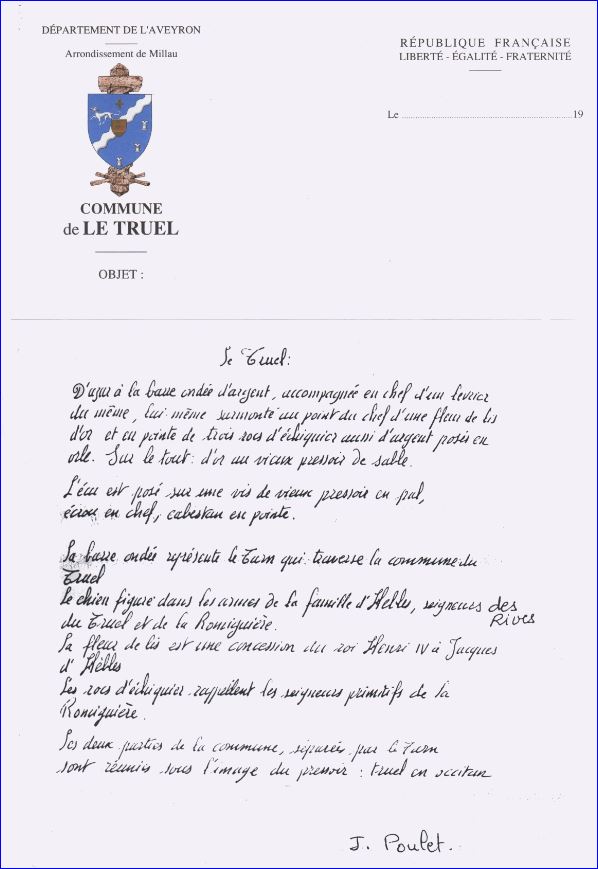 DÉPARTEMENT DE L'AVEYRON
Arrondissement de Millau
COMMUNE
de LE TRUEL
OBJET :
RÉPUBLIQUE FRANÇAISE
LIBERTÉ - ÉGALITÉ - FRATERNITÉ
Le ........................................................19
Le Truel:
D'azur à la barre ondée d'argent, accompagnée en chef d'un levrier
du même, lui même surmonté au point du chef d'une fleur de lis
d'or et en pointe de trois rocs d'échiquier aussi d'argent posés en
orle. Sur le tout: d'or au vieux pressoir de sable.
L'écu est posé sur une vis de vieux pressoir en pal,
écrou en chef, cabestan en pointe.
La barre ondée représente le Tarn qui traverse la commune du
Truel
Le chien figure dans les armes de la famille d'Hèbles, seigneurs des Rives
du Truel et de la Romiguière.
La fleur de lis est une concession du roi Henri IV à Jacques
d'Hèbles
Les rocs d'échiquier rappellent les seigneurs primitifs de la
Romiguière.
Les deux parties de la commune, séparées par le Tarn
sont réunies sous l'image du pressoir : truel en occitan
J. Poulet.